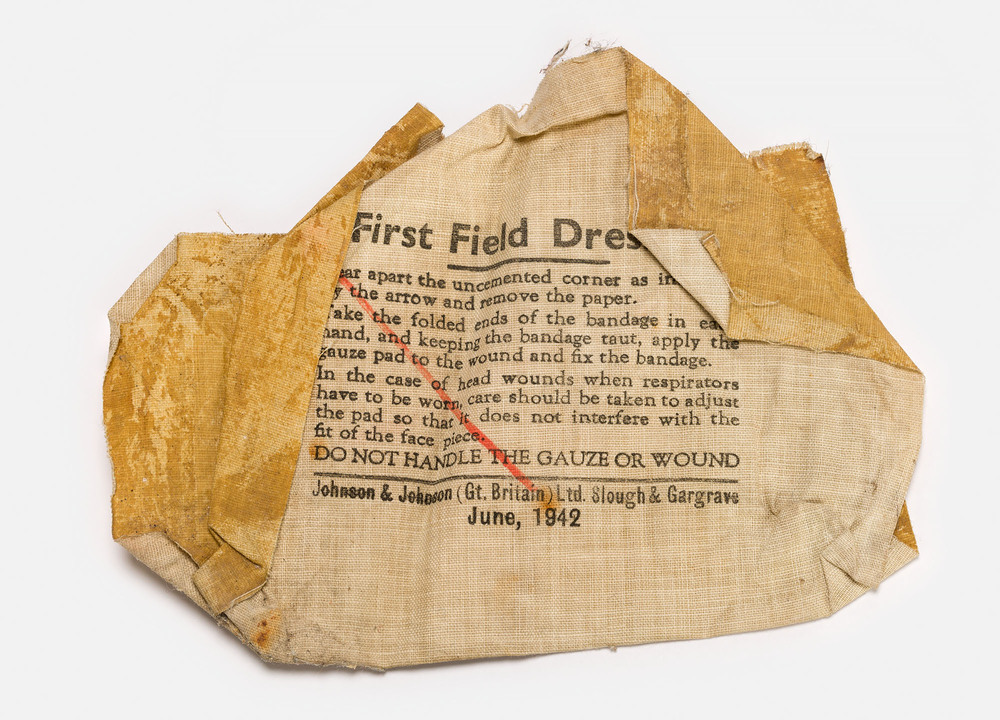 First Field Dres
ear apart the uncemented corner as in
y the arrow and remove the paper.
Take the folded ends of the bandage in ea
hand, and keeping the bandage taut, apply the
gauze pad to the wound and fix the bandage.
In the case of head wounds when respirators
have to be worn, care should be taken to adjust
the pad so that it does not interfere with the
fit of the face piece.
DO NOT HANDLE THE GAUZE OR WOUND
Johnson & Johnson (Gt. Britain) Ltd. Slough & Gargrave
June, 1942